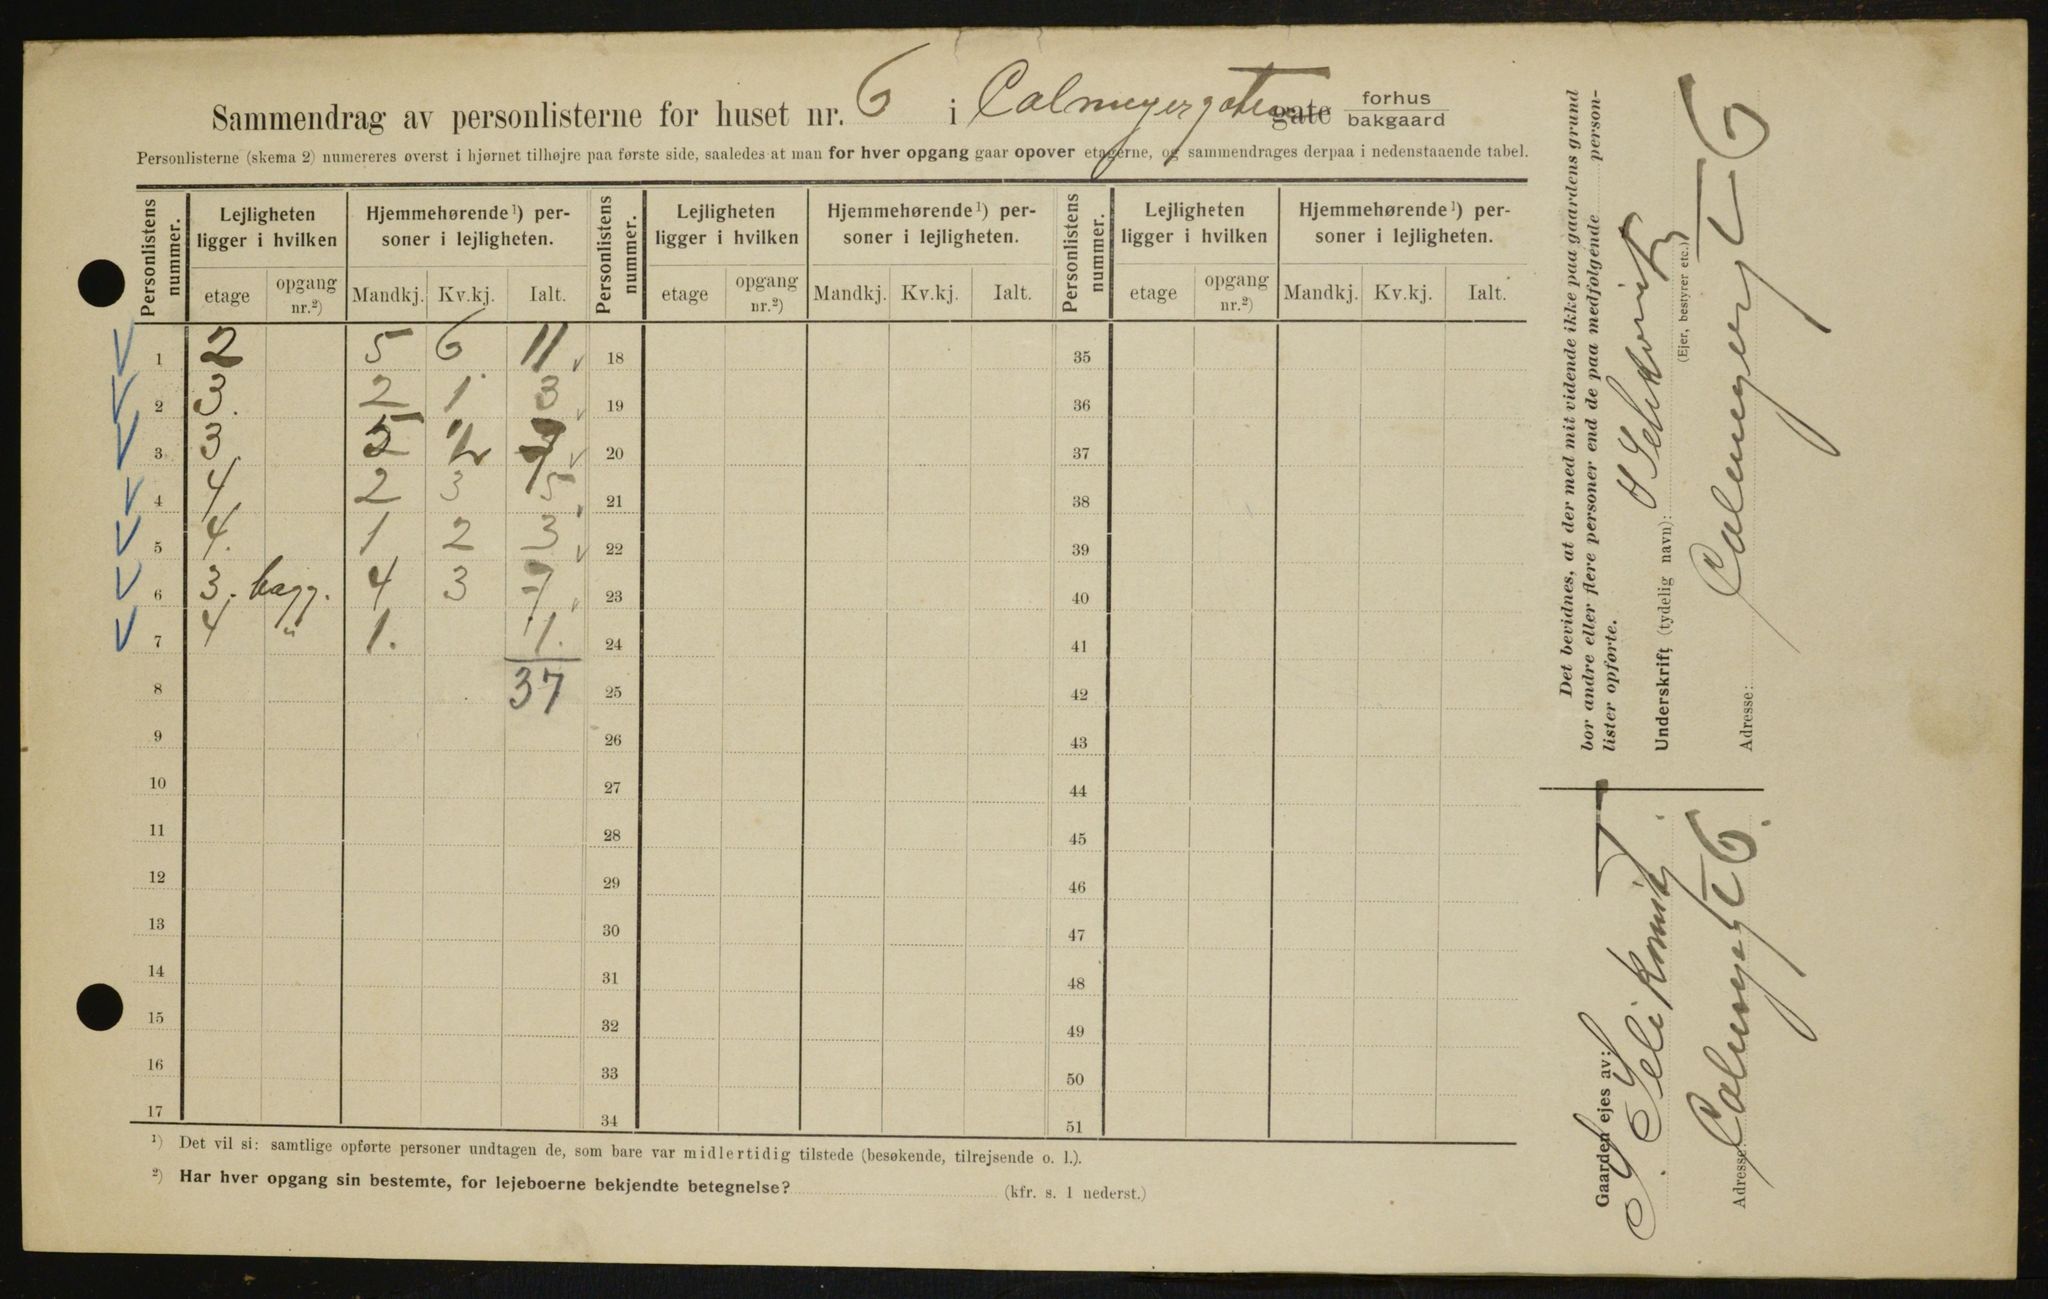 Sammendrag av personlisterne for huset nr. 6 i Calmeyergaten gate forhus bakgaard
Personlisterne (skema 2) numereres øverst i hjørnet tilhøjre paa første side, saaledes at man for hver opgang gaar opover etagerne, og sammendrages derpaa i nedenstaaende tabel.
Personlistens nummer. Lejligheten ligger i hvilken Hjemmehørende ¹) personer i lejligheten. Personlistens nummer. Lejligheten ligger i hvilken Hjemmehørende ¹) personer i lejligheten. Personlistens nummer. Lejligheten ligger i hvilken Hjemmehørende ¹) personer i lejligheten.
etage opgang nr.²) Mandkj. Kv.kj. Ialt. etage opgang nr.²) Mandkj. Kv.kj. Ialt. etage opgang nr.²) Mandkj. Kv.kj. Ialt.
1 2 5 6 11 18 35
2 3. 2 1 3 19 36
3 3. 5 2 7 20 37
4 4 2 3 5 21 38
5 4. 1 2 3 22 39
6 3. bagg. 4 3 7 23 40
7 4 " 1. 1. 24 41
8 37 25 42
9 26 43
10 27 44
11 28 45
12 29 46
13 30 47
14 31 48
15 32 49
16 33 50
17 34 51
¹) Det vil si: samtlige opførte personer undtagen de, som bare var midlertidig tilstede (besøkende, tilrejsende o. l.).
²) Har hver opgang sin bestemte, for lejeboerne bekjendte betegnelse? (kfr. s. 1 nederst.)
Det bevidnes, at der med mit vidende ikke paa gaardens grund
bor andre eller flere personer end de paa medfølgende personlister opførte.
Underskrift (tydelig navn):
(Ejer, bestyrer etc.)
Adresse: Calmeyergt 6
Gaarden ejes av:
Adresse: Calmeyergt 6.